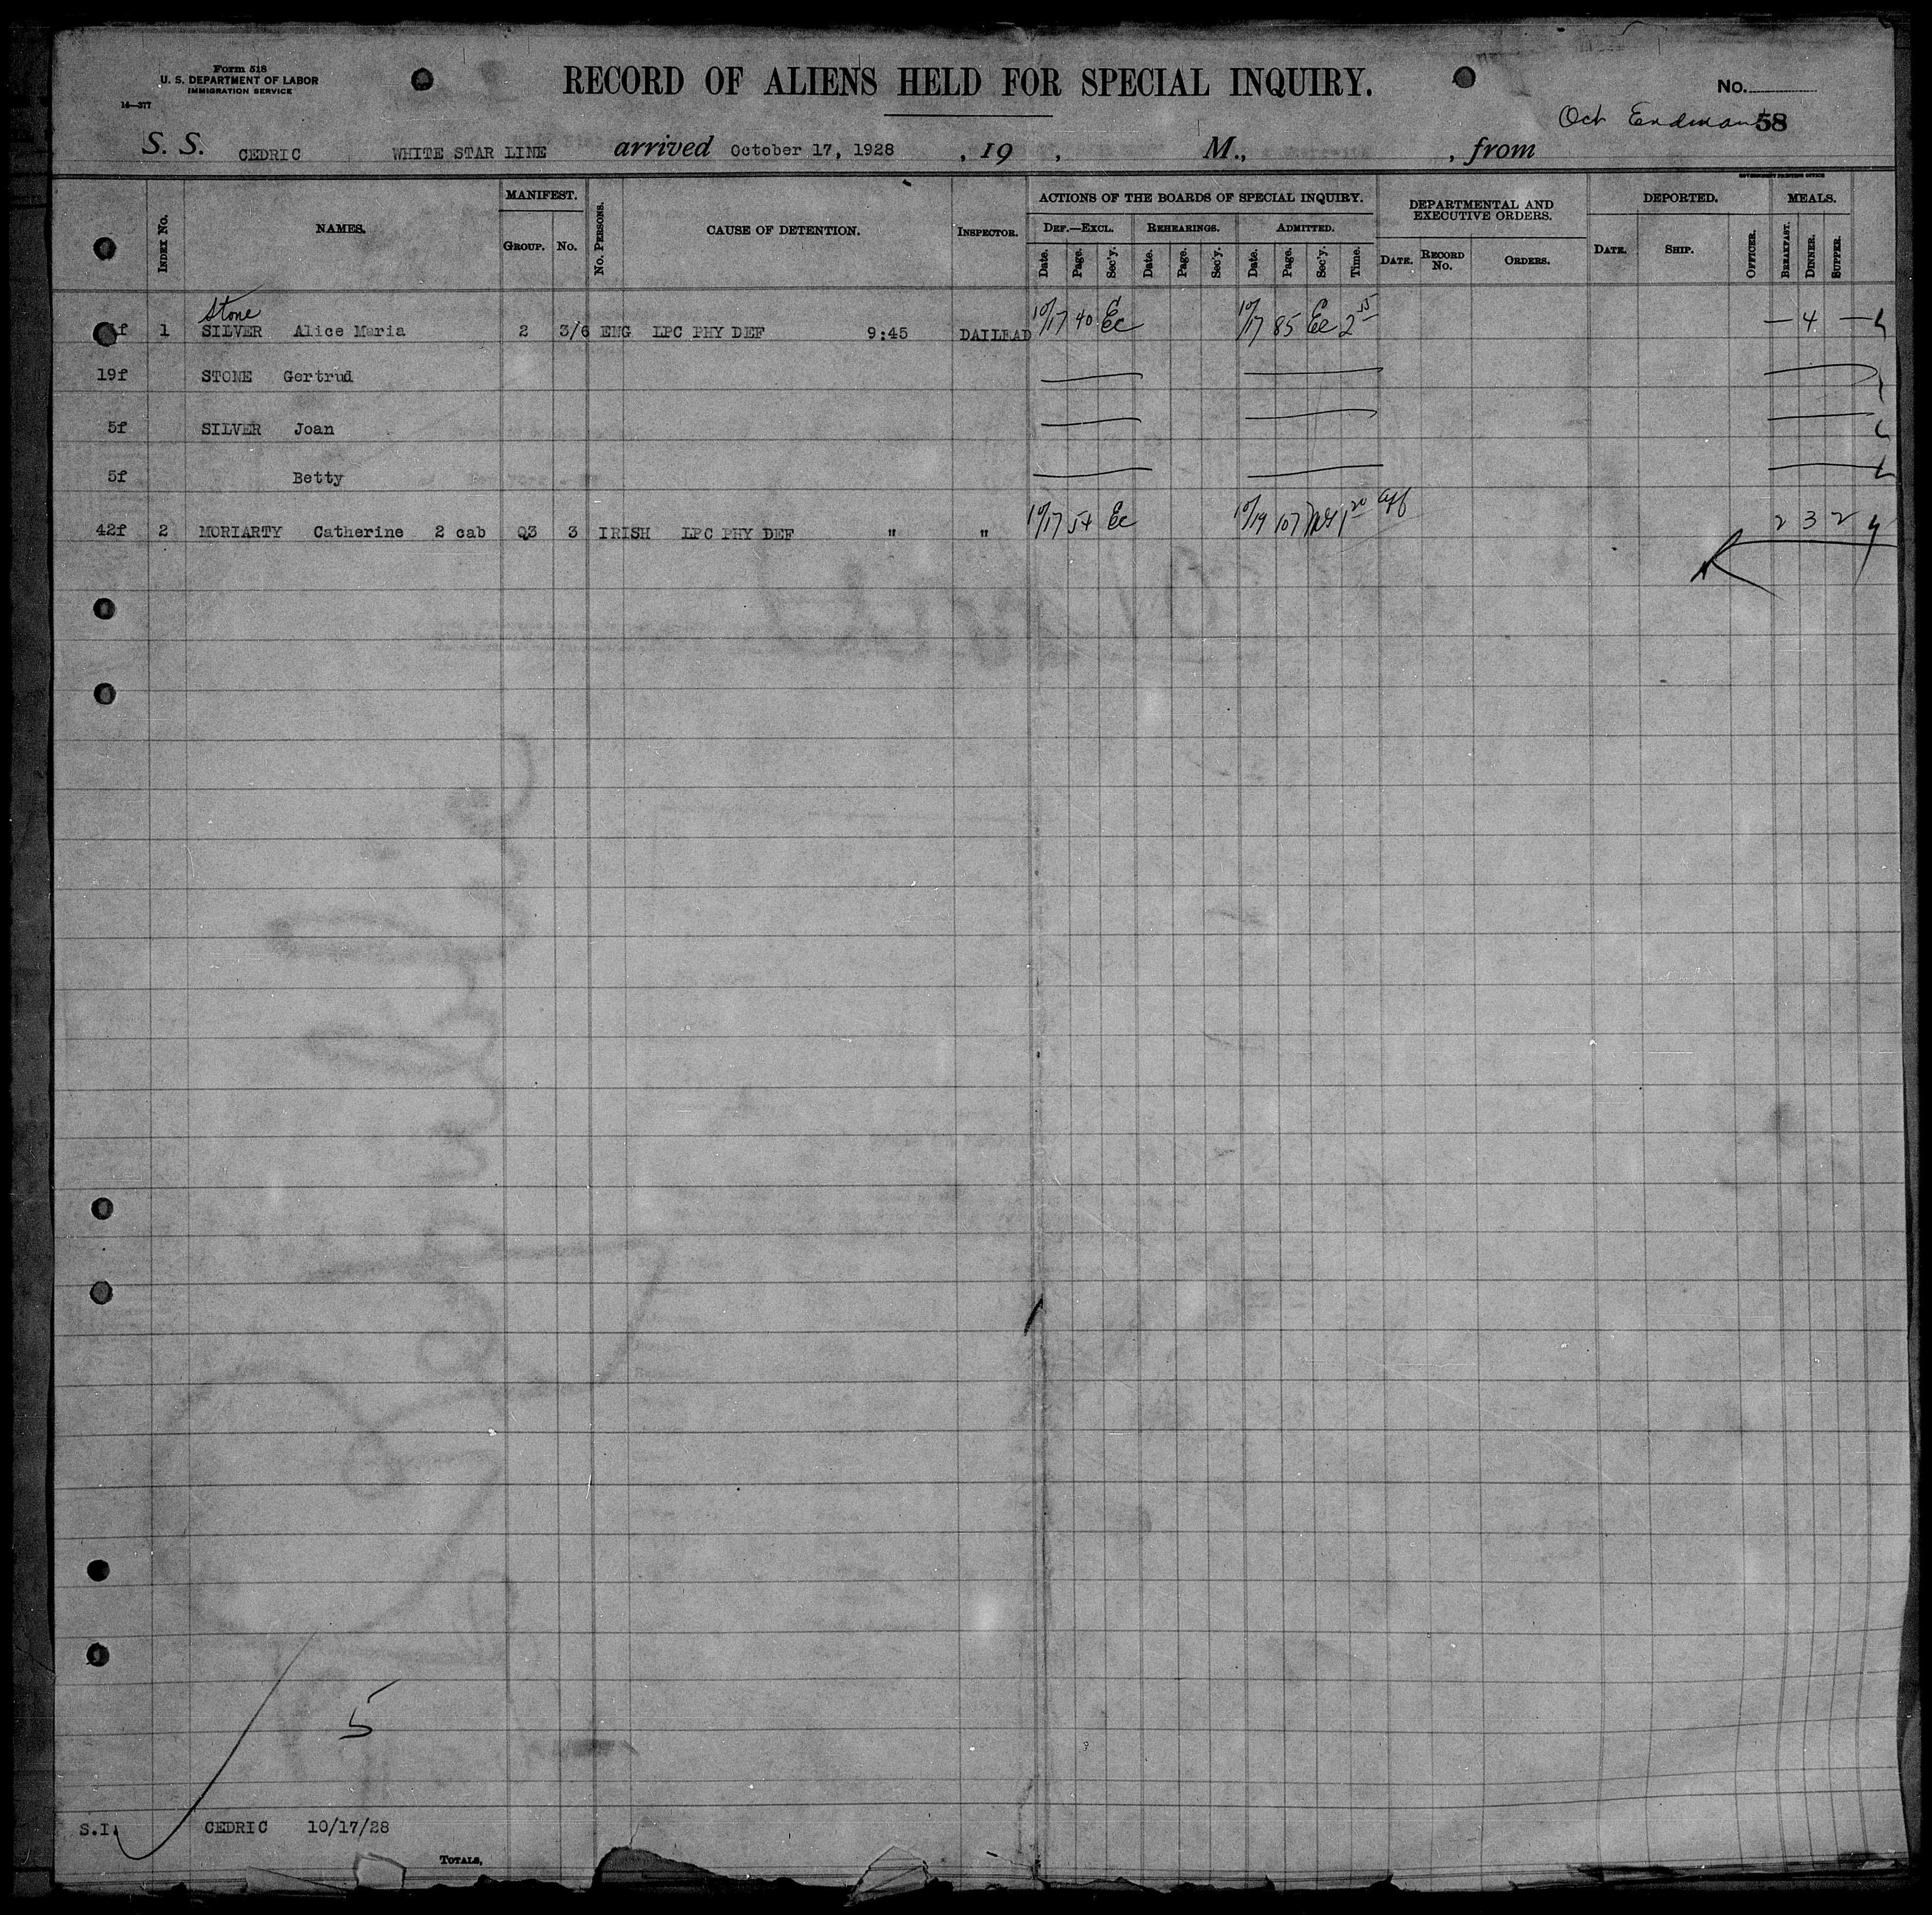 Form 518
U. S. DEPARTMENT OF LABOR
IMMIGRATION SERVICE
16—377
RECORD OF ALIENS HELD FOR SPECIAL INQUIRY.
No.
Oct 58
S. S. CEDRIC WHITE STAR LINE arrived October 17, 1928, 19 , M., , from
GOVERNMENT PRINTING OFFICE
INDEX No. NAMES. MANIFEST. No. PERSONS. CAUSE OF DETENTION. INSPECTOR. ACTIONS OF THE BOARDS OF SPECIAL INQUIRY. DEPARTMENTAL AND EXECUTIVE ORDERS. DEPORTED. MEALS.
GROUP. No. DEF.—EXCL. REHEARINGS. ADMITTED.
Date. Page. Sec'y. Date. Page. Sec'y. Date. Page. Sec'y. Time. DATE. RECORD No. ORDERS. DATE. SHIP. OFFICER. BREAKFAST. DINNER. SUPPER.
Stone
f 1 SILVER Alice Maria 2 3/6 ENG LPC PHY DEF 9:45 DAILEAD 10/17 40 Ec 10/17 85 Ec 2 15 — 4 —
19f STONE Gertrud
5f SILVER Joan
5f Betty
42f 2 MORIARTY Catherine 2 cab Q3 3 IRISH LPC PHY DEF " " 10/17 54 Ec 10/19 107 1 20 aff 2 3 2
5
S.I. CEDRIC 10/17/28
TOTALS,